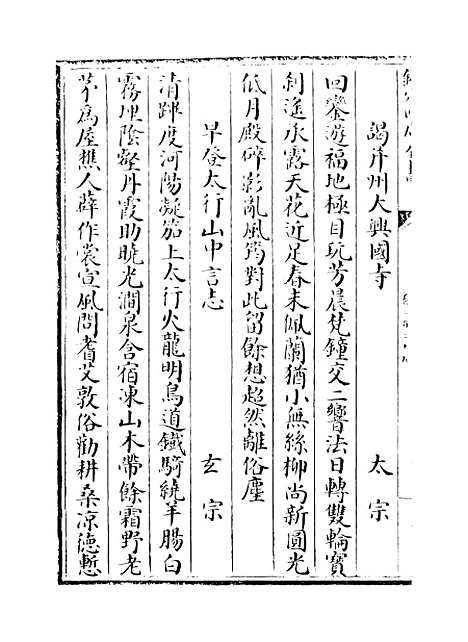 謁并州大興國寺 太宗
回鑾遊福地極目玩芳晨梵鐘交二響法日轉雙輪寶
刹遙承露天花近足春未佩蘭猶小無絲柳尚新圓光
低月殿碎影亂風筠對此留餘想超然離俗塵
早登太行山中言志 玄宗
清蹕度河陽凝笳上太行火龍明鳥道鐵騎繞羊腸白
霧埋陰壑丹霞助曉光澗泉含宿凍山木帶餘霜野老
茅為屋樵人薜作裳宣風問耆艾敦俗勸耕桑凉德慙